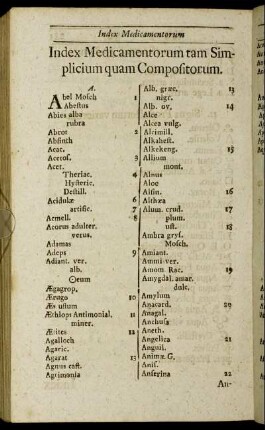 Index Medicamentorum
Index Medicamentorum tam Sim-
plicium quam Compositorum.
A.
Abel Mosch 1
Abestus
Abies alba
rubra
Abrot 2
Absinth
Acac.
Acetos. 3
Acet.
Theriac. 4
Hysteric.
Destill. 5
Acidulæ 6
artific. 7
Acmell. 8
Acorus adulter.
verus.
Adamas
Adeps 9
Adiant. ver.
alb.
aureum
Ægagrop.
Ærugo 10
Æs ustum
Æthiops Antimonial. 11
miner.
Ætites 12
Agalloch
Agaric.
Agarat 13
Agnus cast.
Agrimonia
Alb. græc. 13
nigr.
Alb. ov. 14
Alce
Alcea vulg.
Alcimill.
Alkahest.
Alkekeng. 15
Allium
mont.
Alnus
Aloe
Alsin. 16
Althæa
Alum. crud. 17
plum.
ust. 18
Ambra grys.
Mosch.
Amiant.
Ammi ver.
Amom Rac. 19
Amygdal. amar.
dulc.
Amylum
Anacard. 20
Anagal.
Anchusa
Aneth.
Angelica 21
Anguil.
Animæ G.
Anis.
Anserina 22
An-